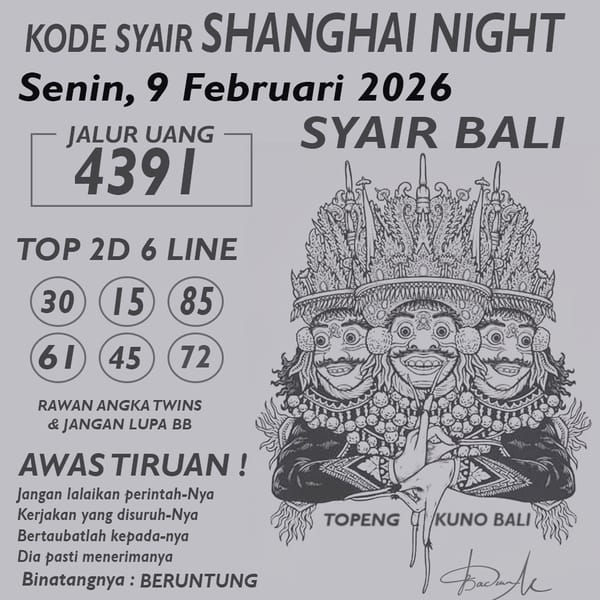 KODE SYAIR SHANGHAI NIGHT
Senin, 9 Februari 2026
JALUR UANG
4391
SYAIR BALI
TOP 2D 6 LINE
30 15 85
61 45 72
RAWAN ANGKA TWINS
& JANGAN LUPA BB
AWAS TIRUAN !
Jangan lalaikan perintah-Nya
Kerjakan yang disuruh-Nya
Bertaubatlah kepada-nya
Dia pasti menerimanya
Binatangnya : BERUNTUNG
TOPENG KUNO BALI